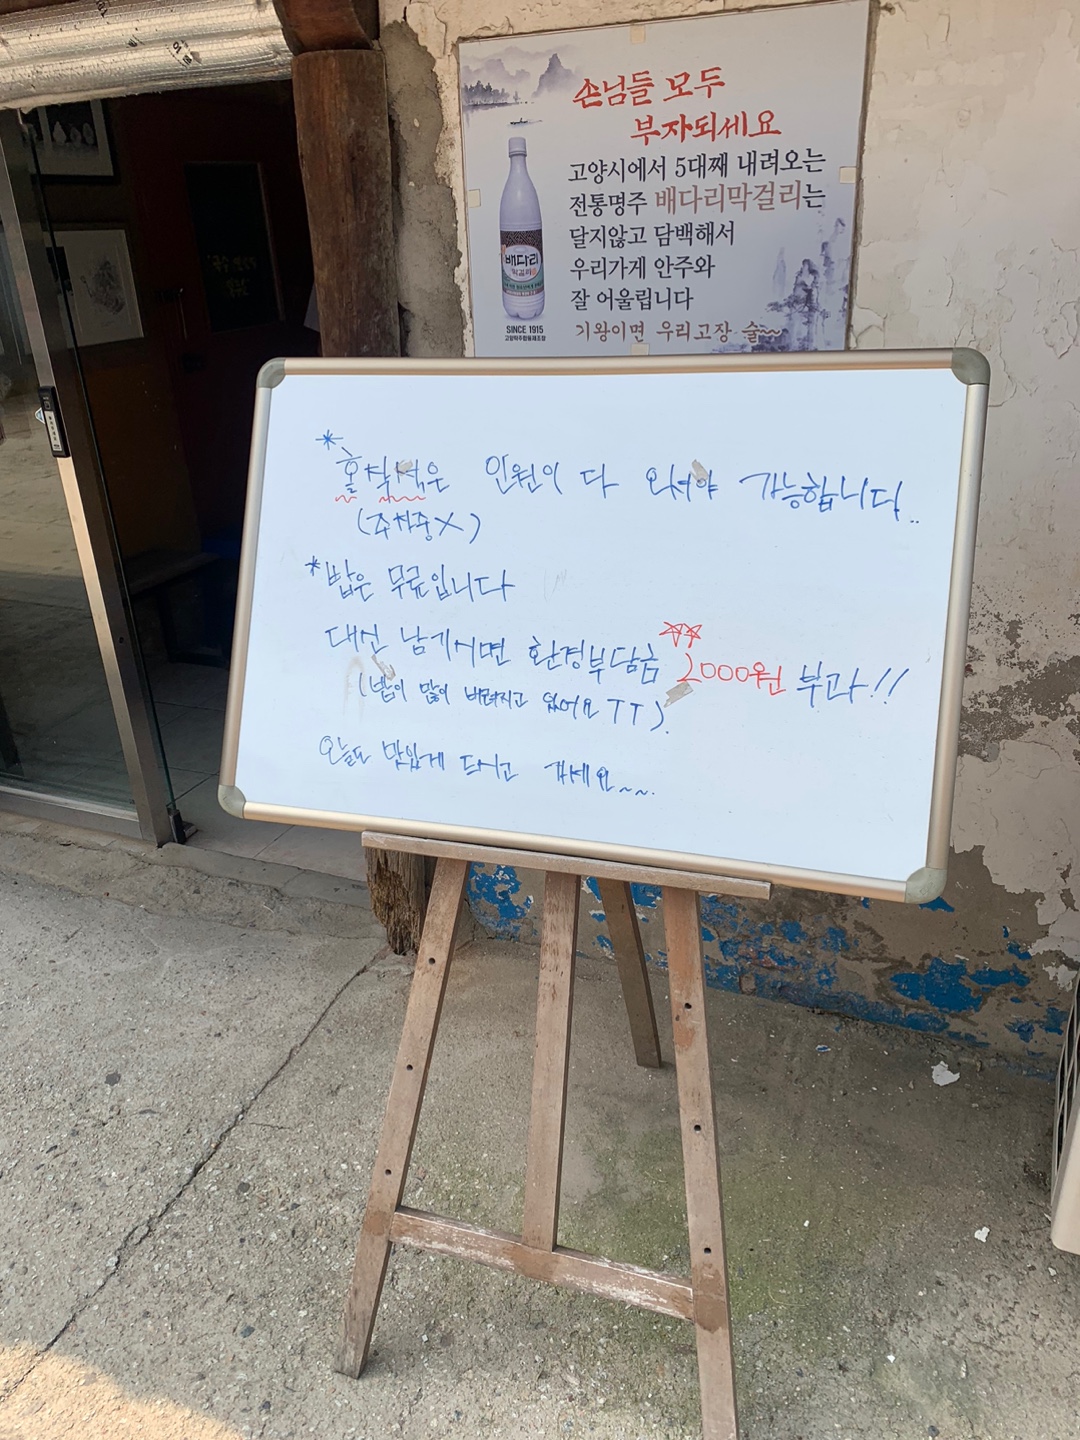 손님들 모두
부자되세요
고양시에서 5대째 내려오는
전통명주 배다리막걸리는
달지않고 담백해서
우리가게 안주와
잘 어울립니다
기왕이면 우리고장 술~~
배다리
막걸리
SINCE 1915
고양탁주합동제조장
* 홀착석은 인원이 다 오셔야 가능합니다..
(주차중X)
* 밥은 무료입니다
대신 남기시면 환경부담금 ☆☆ 2000원 부과!!
(밥이 많이 버려지고 있어요 ㅜㅜ).
오늘도 맛있게 드시고 가세요~~.